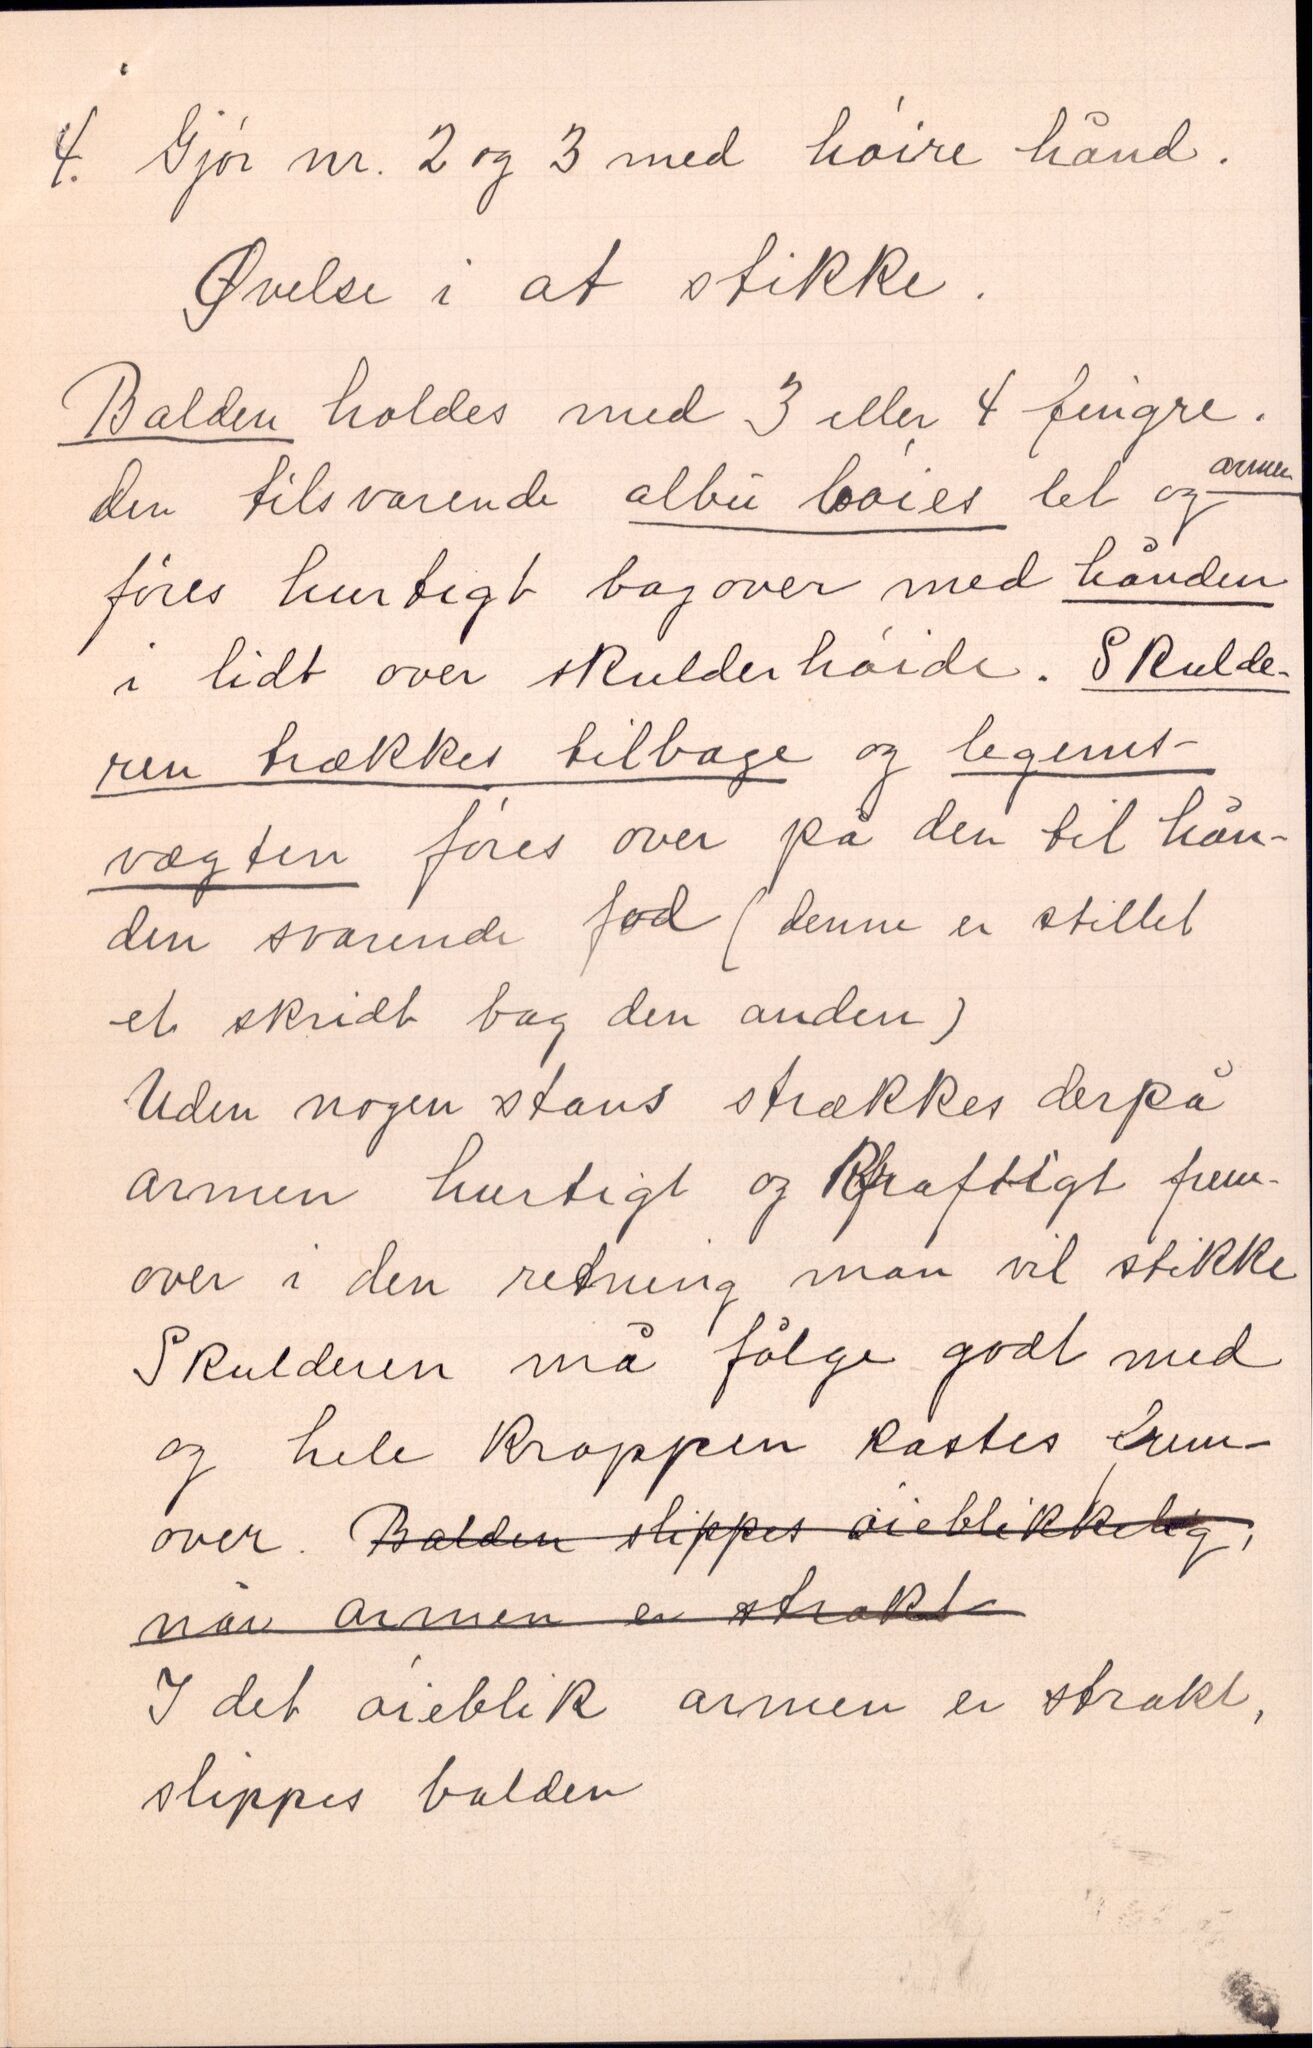 4. Gjór nr. 2 og 3 med hóire hånd.
Øvelse i at stikke.
Balden holdes med 3 eller 4 fingre.
den tilsvarende albu bóies let og armen
fóres hurtigt bagover med hånden
i lidt over skulderhóide. Skulde-
ren trækkes tilbage og legems-
vægten fóres over på den til hån-
den svarende fod (denne er stillet
et skridt bag den anden)
Uden nogen stans strækkes derpå
armen hurtigt og kraftigt frem-
over i den retning man vil stikke
Skulderen må fólge godt med
og hele kroppen kastes frem-
over. Balden slippes óieblikkelig,
når armen er strakt
I det óieblik armen er strakt,
slippes balden